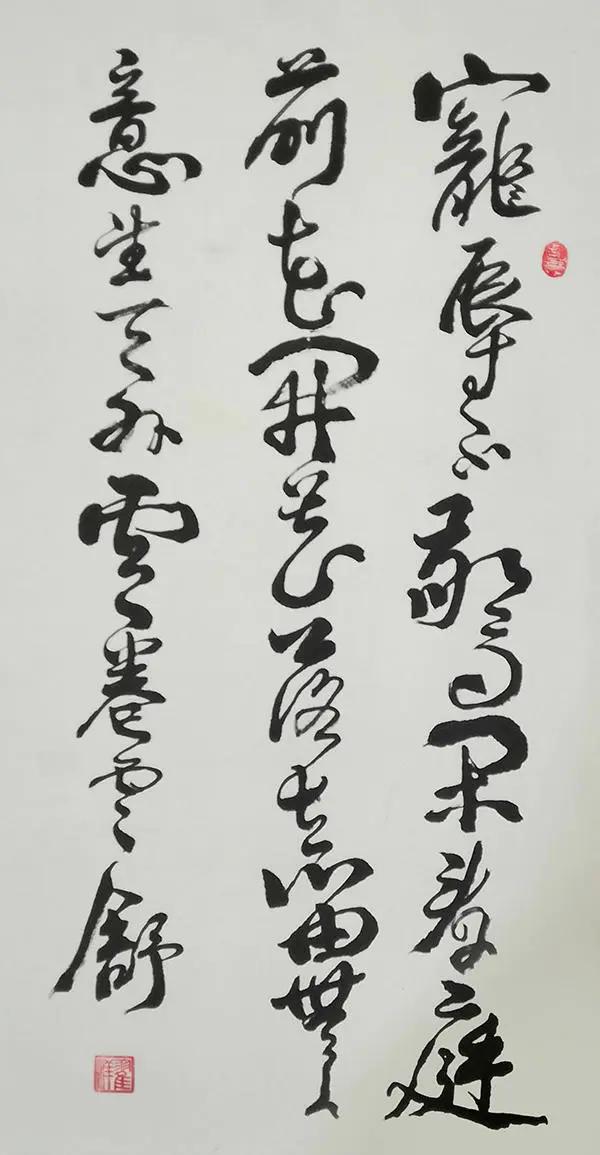 寵辱不驚閑看庭
前花開花落去留無
意望天外雲卷雲舒